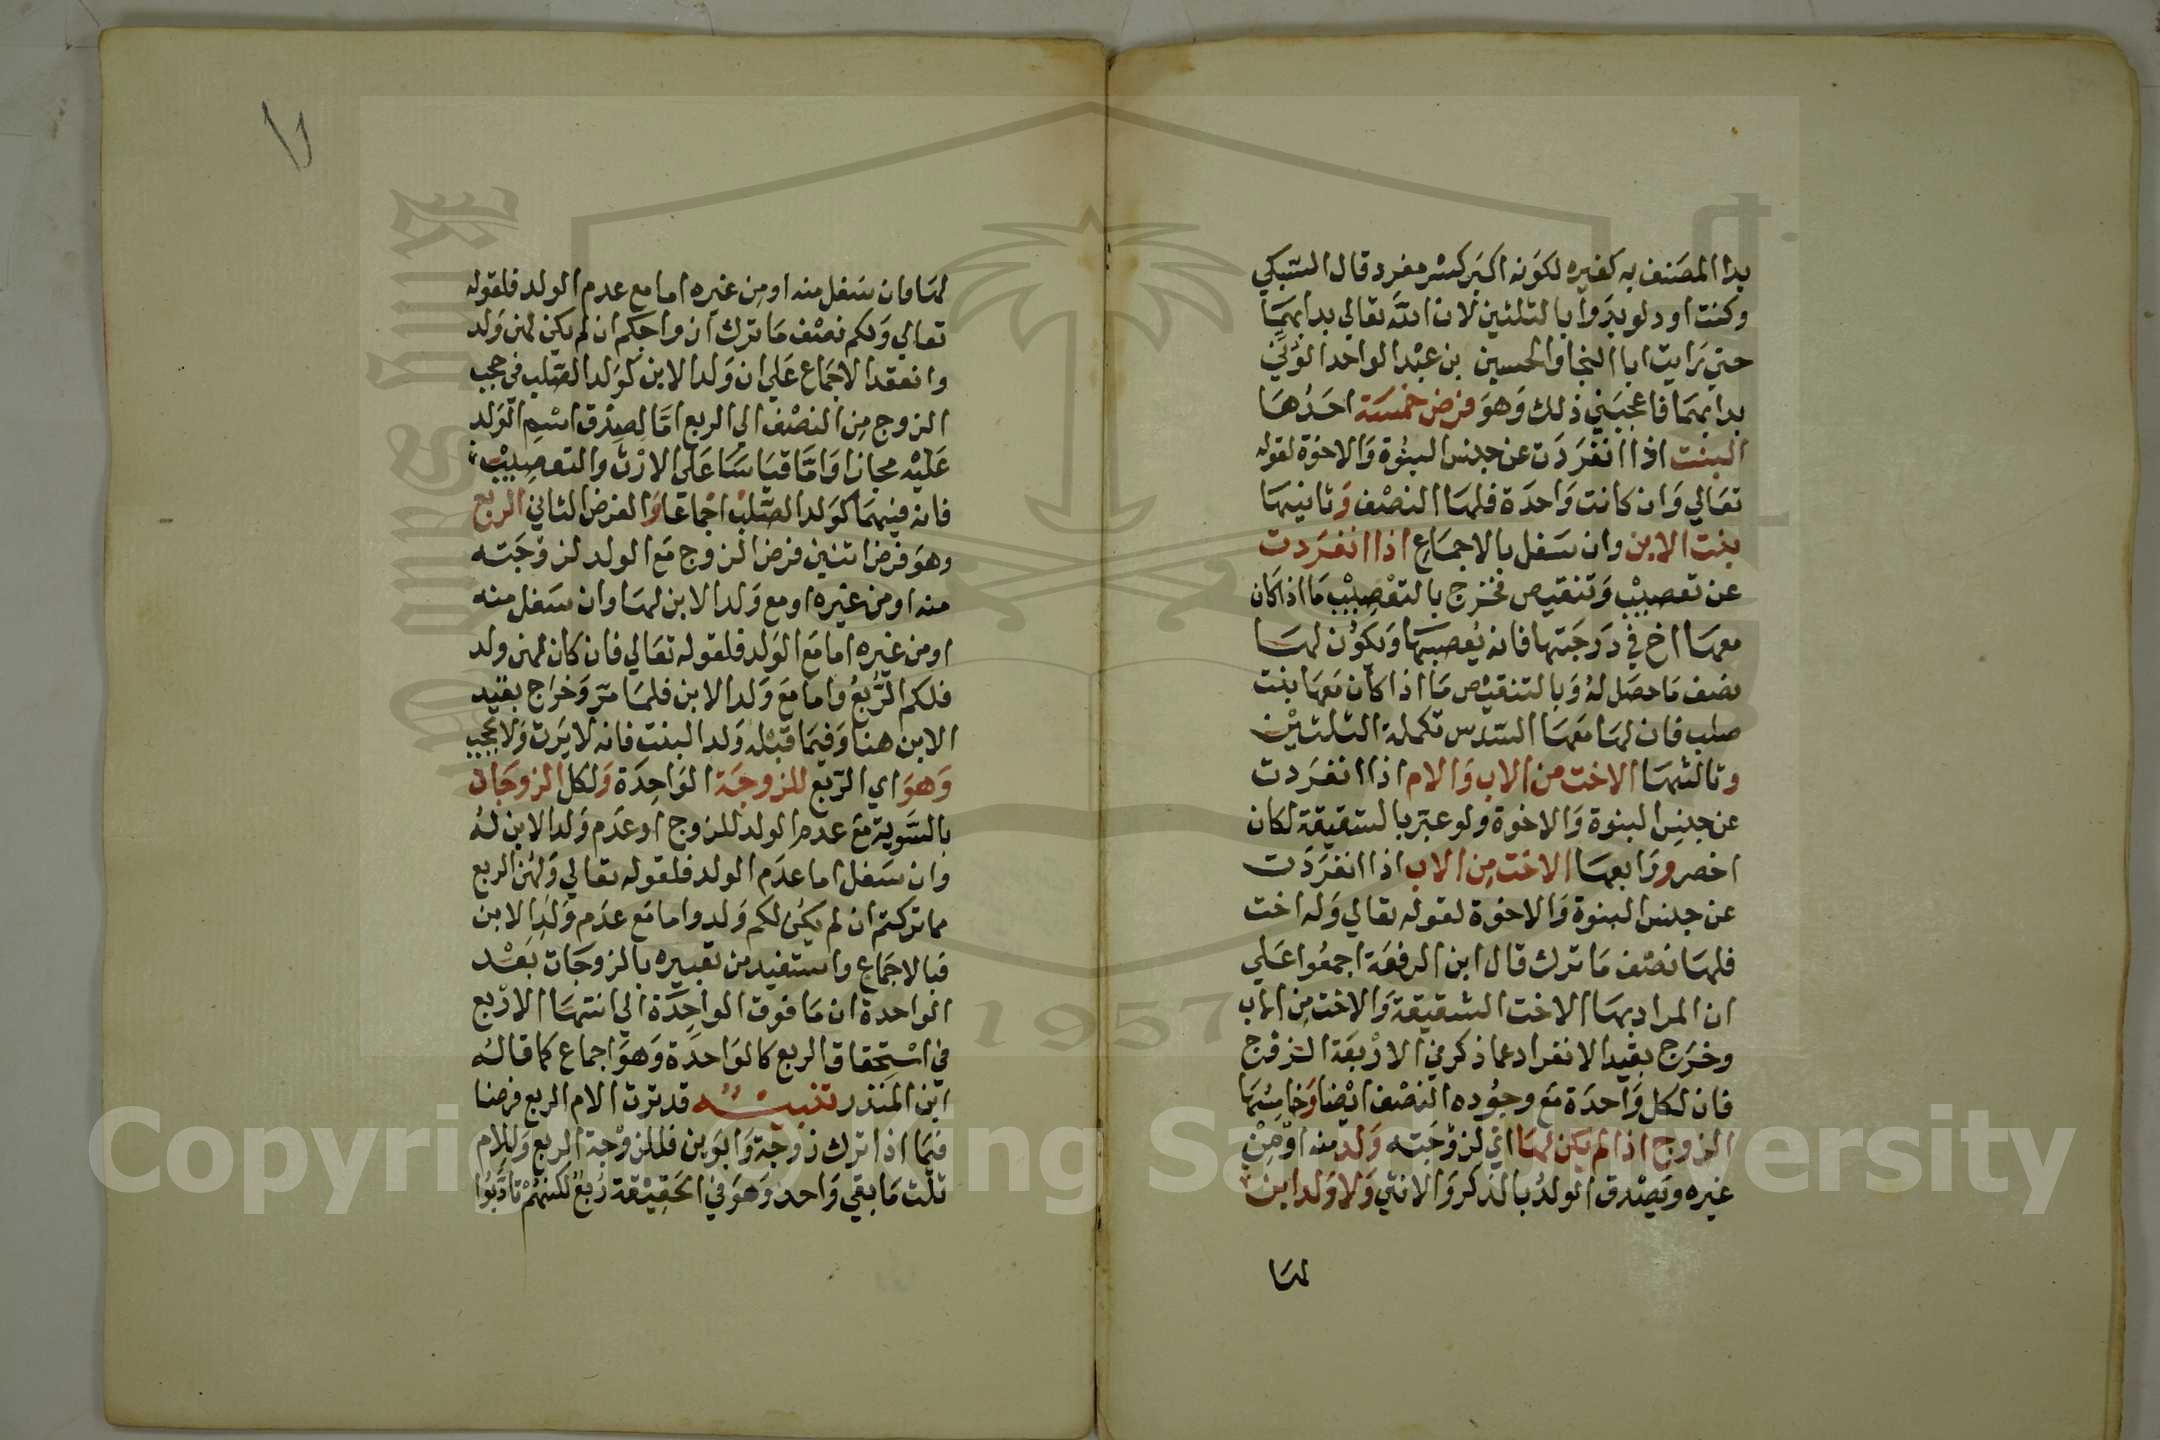 بدا المصنف به كغيره لكونه اكبر كسر مفرد قال السبكي
وكنت اود لو بدوا بالثلثين لان الله تعالي بدا بهما
حتي رايت ابا النجا والحسين بن عبد الواحد الوني
بدا بهما فاعجبني ذلك وهو فرض خمسة احدها
البنت اذا انفردت عن جنس البنوة والاخوة لقوله
تعالي وان كانت واحدة فلها النصف وثانيها
بنت الابن وان سفل بالاجماع اذا انفردت
عن تعصيب وتنقيص فخرج بالتعصيب ما اذا كان
معها اخ في درجتها فانه يعصبها ويكون لها
نصف ما حصل له وبالتنقيص ما اذا كان معها بنت
صلب فان لها معها السدس تكملة الثلثين
وثالثها الاخت من الاب والام اذا انفردت
عن جنس البنوة والاخوة ولو عبر بالشقيقة لكان
اخصر ورابعها الاخت من الاب اذا انفردت
عن جنس البنوة والاخوة لقوله تعالي وله اخت
فلها نصف ما ترك قال ابن الرفعة اجمعوا علي
ان المراد بها الاخت الشقيقة والاخت من الاب
وخرج بقيد الانفراد عما ذكر في الاربعة الزوج
فان لكل واحدة مع وجوده النصف ايضا وخامسها
الزوج اذا لم يكن لها اي لزوجته ولد منه او من
غيره ويصدق الولد بالذكر والانثي ولا ولد ابن
لها
لها وان سفل منه او من غيره اما مع عدم الولد فلقوله
تعالي ولكم نصف ما ترك ازواجكم ان لم يكن لهن ولد
وانعقد الاجماع علي ان ولد الابن كولد الصلب في حجب
الزوج من النصف الي الربع اما لصدق اسم الولد
عليه مجازا واما قياسا علي الارث والتعصيب
فانه فيهما كولد الصلب اجماعا والفرض الثاني الربع
وهو فرض اثنين فرض الزوج مع الولد لزوجته
منه او من غيره او مع ولد الابن لها وان سفل منه
او من غيره اما مع الولد فلقوله تعالي فان كان لهن ولد
فلكم الربع واما مع ولد الابن فلما مر وخرج بقيد
الابن هنا وفيما قبله ولد البنت فانه لا يرث ولا يحجب
وهو اي الربع للزوجة الواحدة ولكل الزوجات
بالسوية مع عدم الولد للزوج او عدم ولد الابن له
وان سفل اما عدم الولد فلقوله تعالي ولهن الربع
مما تركتم ان لم يكن لكم ولد واما مع عدم ولد الابن
فبالاجماع واستفيد من تعبيره بالزوجات بعد
الواحدة ان ما فوق الواحدة الي انتها الاربع
في استحقاق الربع كالواحدة وهو اجماع كما قاله
ابن المنذر تنبيه قد ترث الام الربع فرضا
فيما اذا ترك زوجة وابوين فللزوجة الربع وللام
ثلث ما بقي واحد وهو في الحقيقة ربع لكنهم تادبوا
1957
Copyri ing Sa ersity